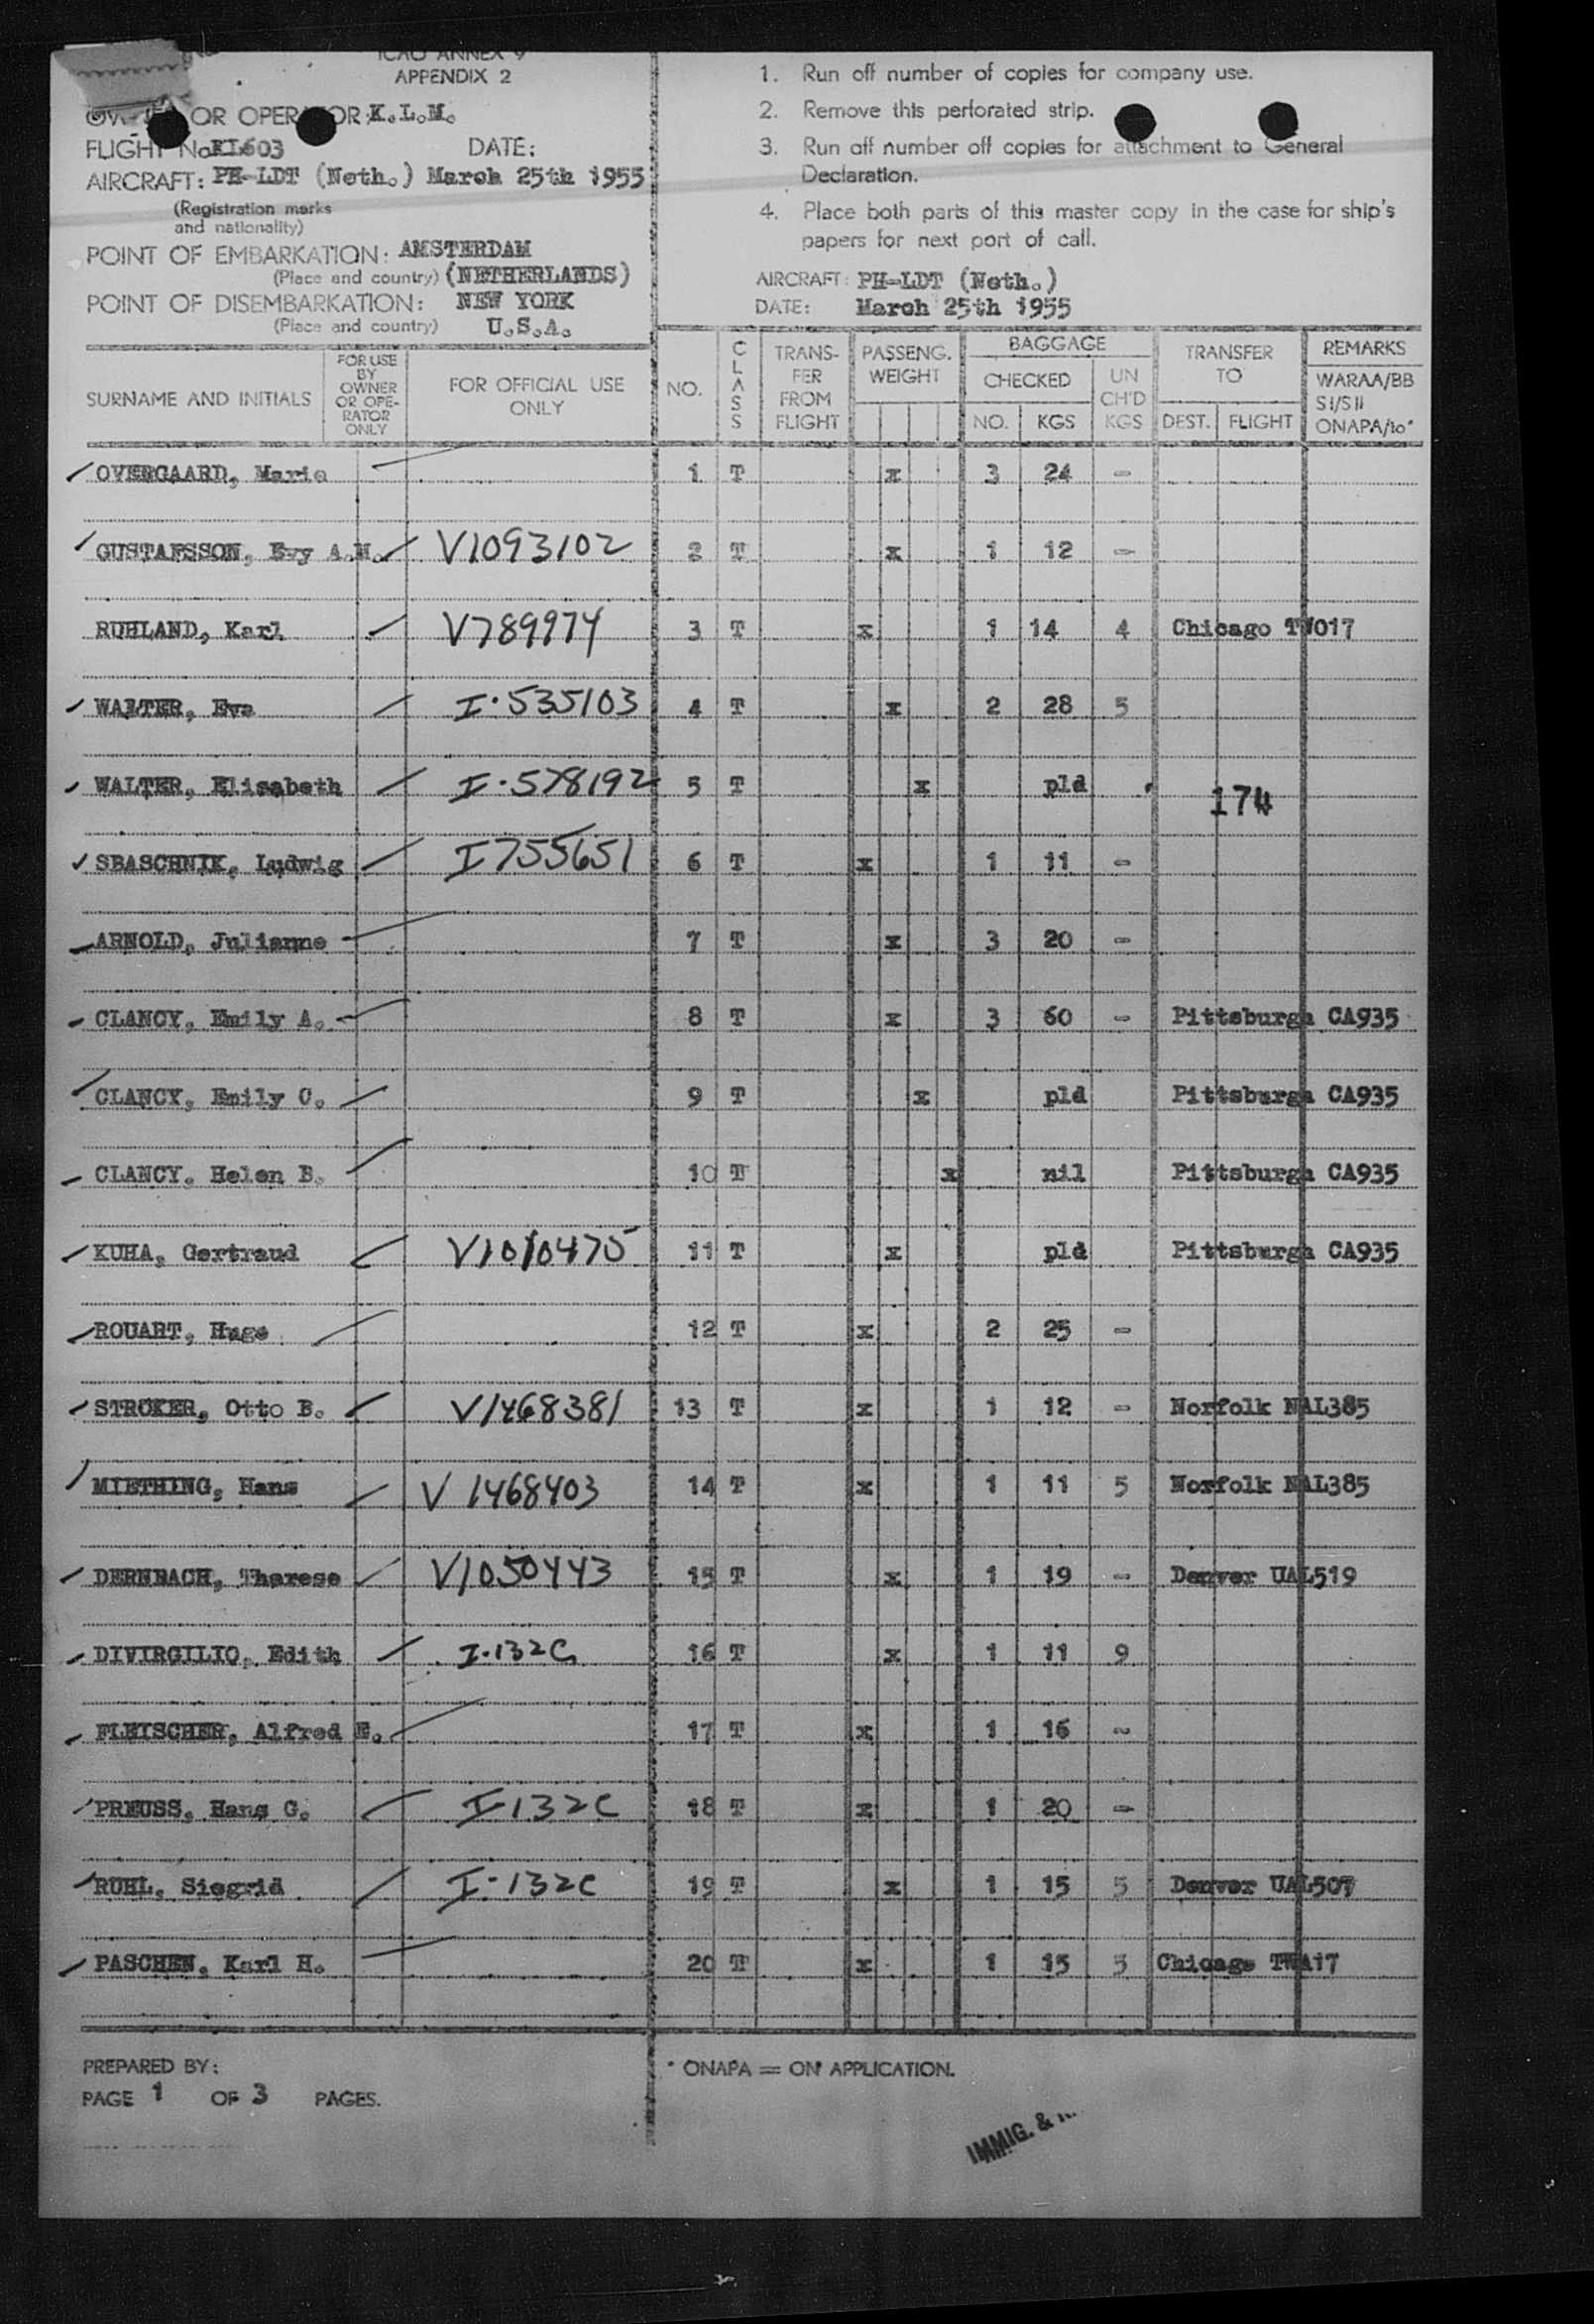 ICAO ANNEX 9
APPENDIX 2
OR OPERATOR: K.L.M.
FLIGHT No KL603 DATE:
AIRCRAFT: PH-LDT (Neth.) March 25th 1955
(Registration marks
and nationality)
POINT OF EMBARKATION: AMSTERDAM
(Place and country) (NETHERLANDS)
POINT OF DISEMBARKATION: NEW YORK
(Place and country) U.S.A.
1. Run off number of copies for company use.
2. Remove this perforated strip.
3. Run off number off copies for attachment to General
Declaration.
4. Place both parts of this master copy in the case for ship's
papers for next port of call.
AIRCRAFT: PH-LDT (Neth.)
DATE: March 25th 1955
SURNAME AND INITIALS
FOR USE
BY
OWNER
OR OPE-
RATOR
ONLY
FOR OFFICIAL USE
ONLY
NO.
CLASS
TRANS-
FER
FROM
FLIGHT
PASSENG.
WEIGHT
BAGGAGE
CHECKED
NO. KGS
UN
CH'D
KGS
TRANSFER
TO
DEST. FLIGHT
REMARKS
WARAA/BB
SI/SII
ONAPA/10*
OVERGAARD, Marie 1 T x 3 24 -
GUSTAFSSON, Evy A.M. V1093102 2 T x 1 12 -
RUHLAND, Karl V789974 3 T x 1 14 4 Chicago TW017
WALTER, Eva I·535103 4 T x 2 28 5
WALTER, Elisabeth I·578192 5 T x pld
174
SBASCHNIK, Ludwig I755651 6 T x 1 11 -
ARNOLD, Julianne 7 T x 3 20 -
CLANCY, Emily A. 8 T x 3 60 - Pittsburgh CA935
CLANCY, Emily C. 9 T x pld Pittsburgh CA935
CLANCY, Helen B. 10 T x nil Pittsburgh CA935
KUHA, Gertraud V1010475 11 T x pld Pittsburgh CA935
ROUART, Hugo 12 T x 2 25 -
STROKER, Otto B. V1468381 13 T x 1 12 - Norfolk NAL385
MIETHING, Hans V 1468403 14 T x 1 11 5 Norfolk NAL385
DERNBACH, Therese V1050443 15 T x 1 19 - Denver UAL519
DIVIRGILIO, Edith I·132C 16 T x 1 11 9
FLEISCHER, Alfred E. 17 T x 1 16 -
PREUSS, Hans G. I 132C 18 T x 1 20 -
RUHL, Siegrid I·132C 19 T x 1 15 5 Denver UAL507
PASCHEN, Karl H. 20 T x 1 15 5 Chicago TWA17
PREPARED BY:
PAGE 1 OF 3 PAGES.
* ONAPA = ON APPLICATION.
IMMIG. &